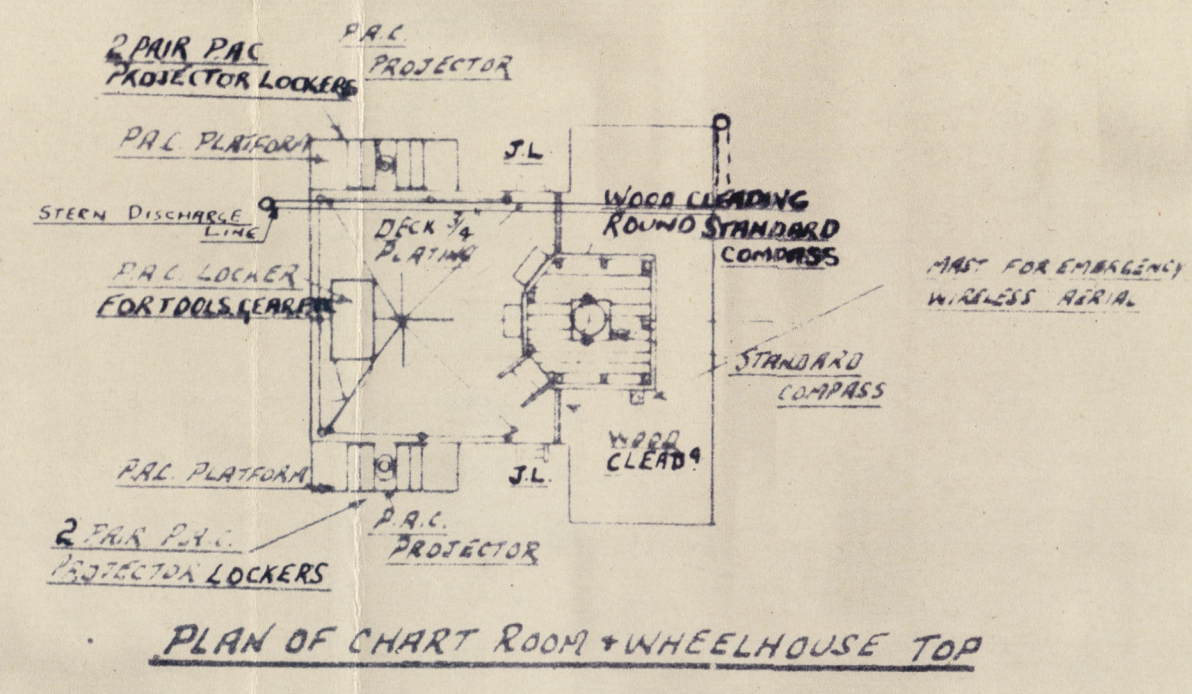 2 PAIR P.A.C
PROJECTOR LOCKERS
P.A.C.
PROJECTOR
P.A.C PLATFORM
J.L
STERN DISCHARGE
LINE
DECK 3/4"
PLATING
WOOD CLEADING
ROUND STANDARD
COMPASS
P.A.C. LOCKER
FOR TOOLS, GEAR
MAST FOR EMERGENCY
WIRELESS AERIAL
STANDARD
COMPASS
WOOD
CLEADG
P.A.C. PLATFORM
J.L.
2 PAIR P.A.C.
PROJECTOR LOCKERS
P.A.C.
PROJECTOR
PLAN OF CHART ROOM & WHEELHOUSE TOP